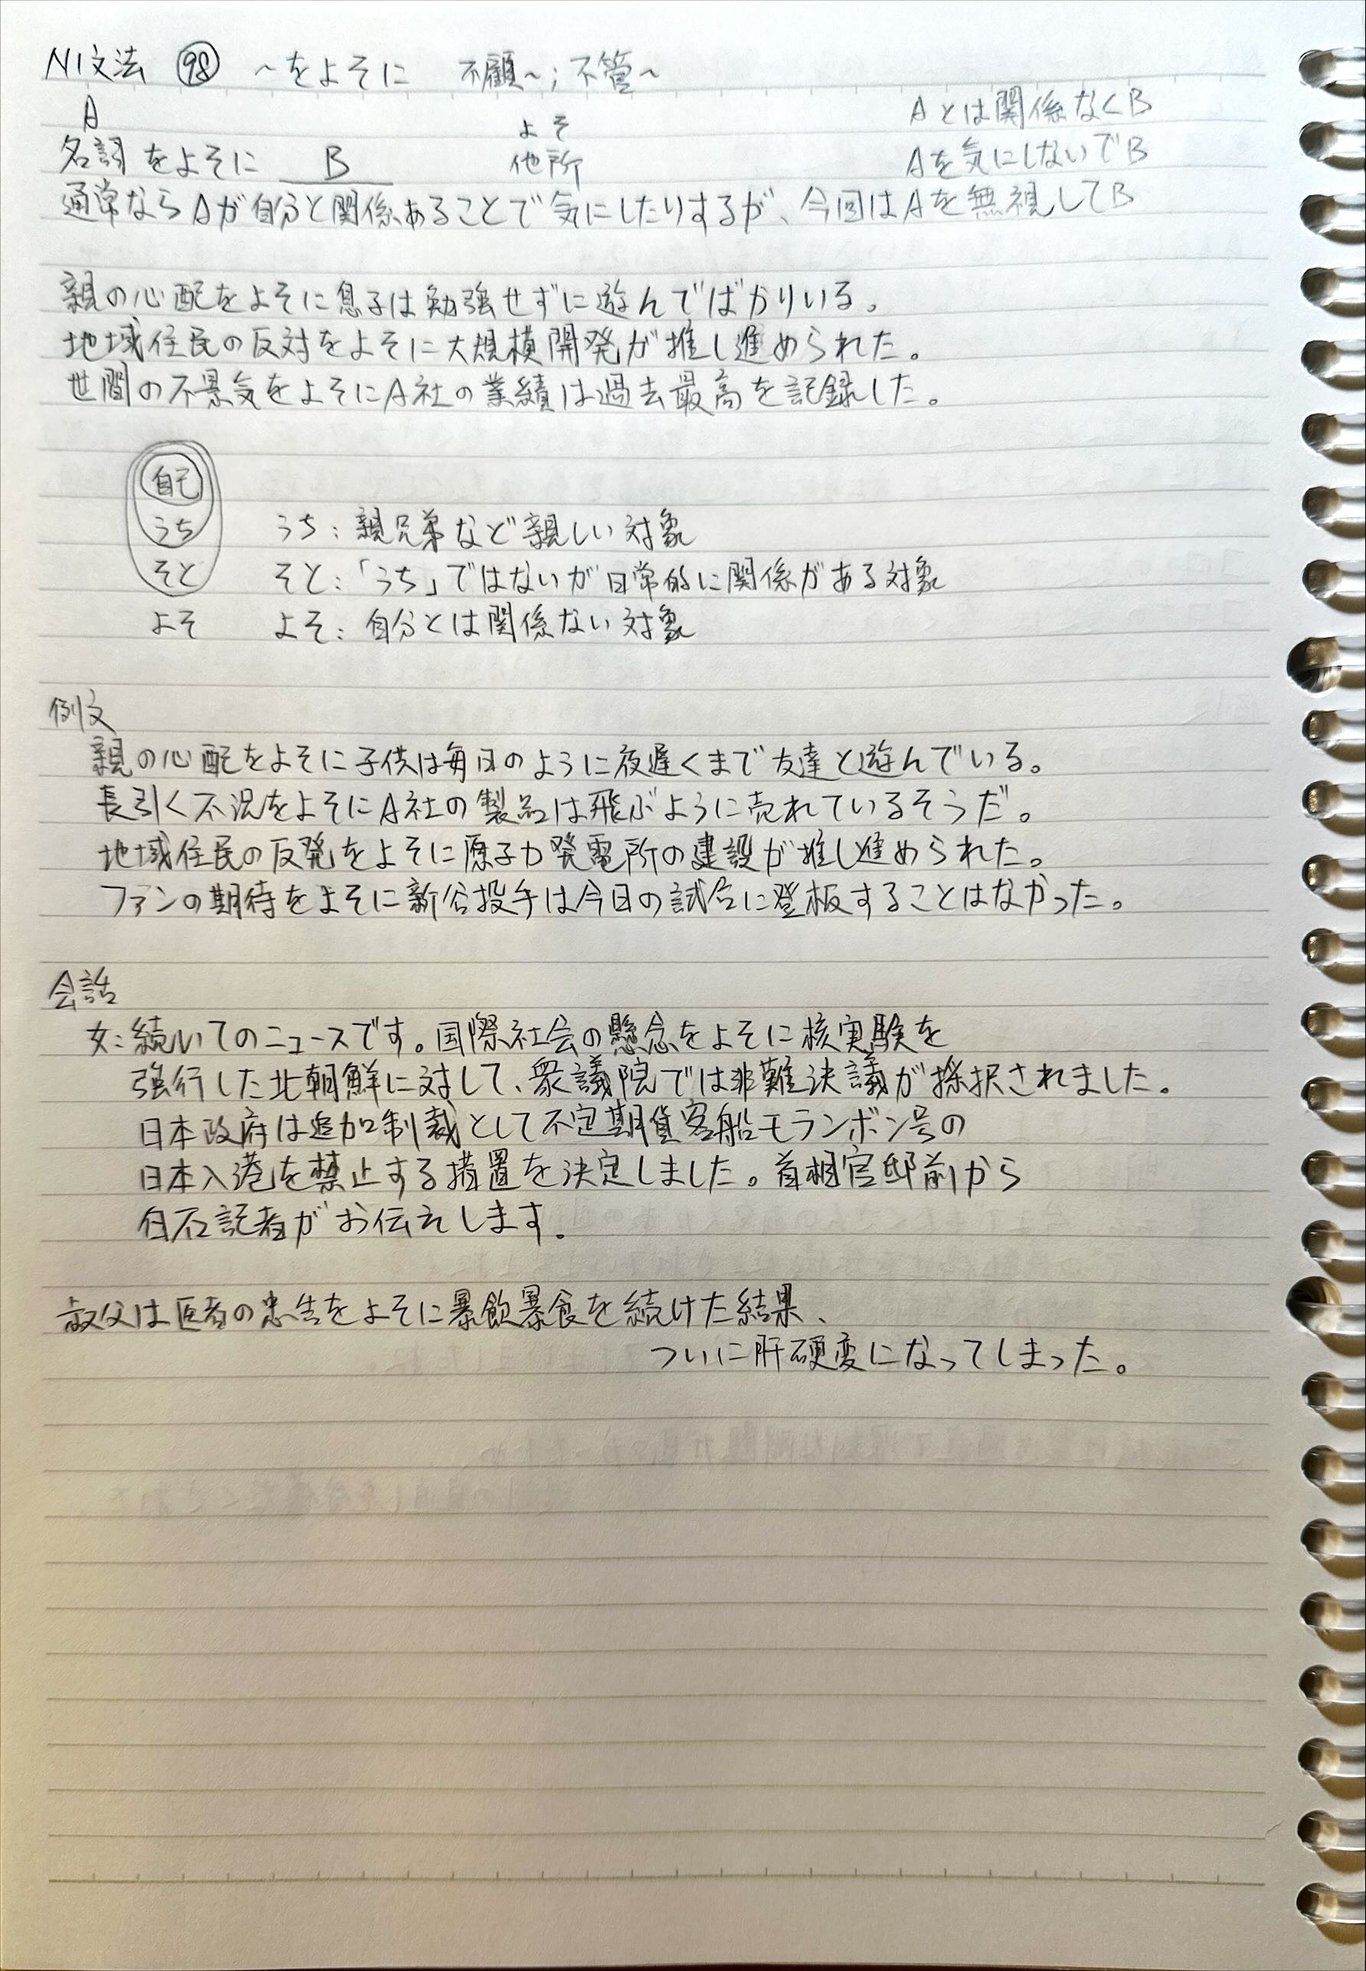 N1文法 98 ~をよそに 不顧~;不管~
A Aとは関係なくB
よそ
名詞をよそに B 他所 Aを気にしないでB
通常ならAが自分と関係あることで気にしたりするが、今回はAを無視してB
親の心配をよそに息子は勉強せずに遊んでばかりいる。
地域住民の反対をよそに大規模開発が推し進められた。
世間の不景気をよそにA社の業績は過去最高を記録した。
自己
うち うち:親兄弟など親しい対象
そと そと:「うち」ではないが日常的に関係がある対象
よそ よそ:自分とは関係ない対象
例文
親の心配をよそに子供は毎日のように夜遅くまで友達と遊んでいる。
長引く不況をよそにA社の製品は飛ぶように売れているそうだ。
地域住民の反発をよそに原子力発電所の建設が推し進められた。
ファンの期待をよそに新谷投手は今日の試合に登板することはなかった。
会話
女:続いてのニュースです。国際社会の懸念をよそに核実験を
強行した北朝鮮に対して、衆議院では非難決議が採択されました。
日本政府は追加制裁として不定期貨客船モランボン号の
日本入港を禁止する措置を決定しました。首相官邸前から
白石記者がお伝えします。
叔父は医者の忠告をよそに暴飲暴食を続けた結果、
ついに肝硬変になってしまった。